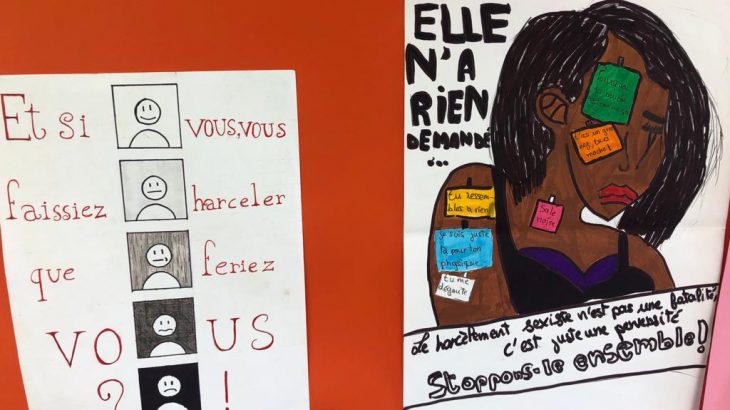 Et si vous, vous
faissiez harceler
que feriez
VOUS
? !
ELLE
N'A
RIEN
DEMANDÉ
...
t'as un gros
nez, t'es
moche!
tu ressem-
bles à rien
Sale
noire
je suis juste
là pour ton
physique
tu me
dégoute
Le harcèlement sexiste n'est pas une fatalité,
c'est juste une perversité
Stoppons-le ensemble!